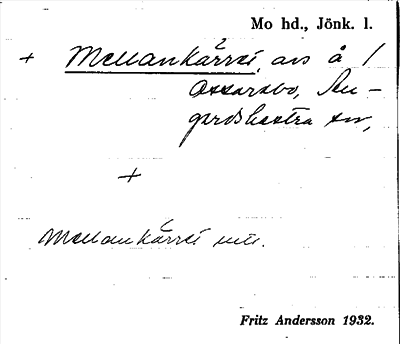 Mo hd., Jönk. l.
+ Mellankärret, avs å /
Ossarabo, An-
gerdshestra sn,
+
Mellankärret
Fritz Andersson 1932.